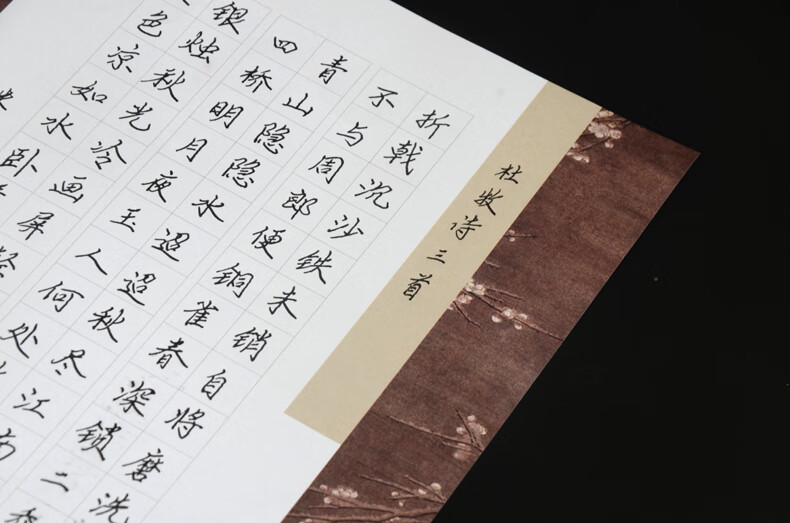 杜牧诗三首
折戟沉沙铁未销自将磨洗
不与周郎便铜雀春深锁二乔
青山隐隐水迢迢秋尽江南
四桥明月夜玉人何处
银烛秋光冷画屏
色凉如水卧